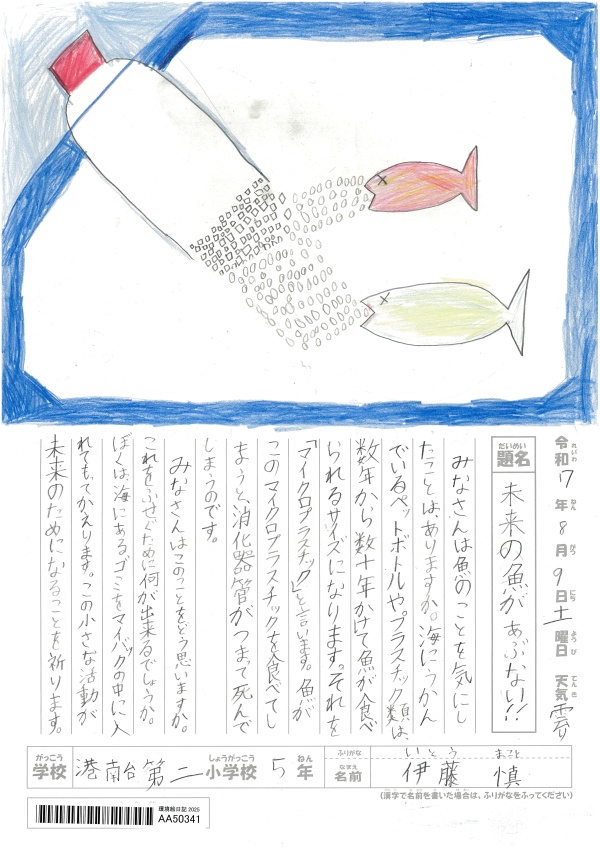 令和7年8月9日土曜日 天気雲
れいわ ねん がつ にち よう び てん き
だいめい
題名 未来の魚があぶない!!
みなさんは魚のことを気にし
たことは、ありますか。海にうかん
でいるペットボトルや、プラスチック類は、
数年から数十年かけて魚が食べ
られるサイズになります。それを
「マイクロプラスチック」と言います。魚が
このマイクロプラスチックを食べてし
まうと、消化器管がつまって死んで
しまうのです。
みなさんはこのことをどう思いますか。
これをふせぐために何が出来るでしょうか。
ぼくは、海にあるゴミをマイバックの中に入
れてもってかえります。この小さな活動が
未来のためになることを祈ります。
がっこう しょうがっこう ねん
学校 港南台第二小学校 5年
ふりがな いとう まこと
なまえ
名前 伊藤 慎
(漢字で名前を書いた場合は、ふりがなをふってください)
環境絵日記 2025
AA50341